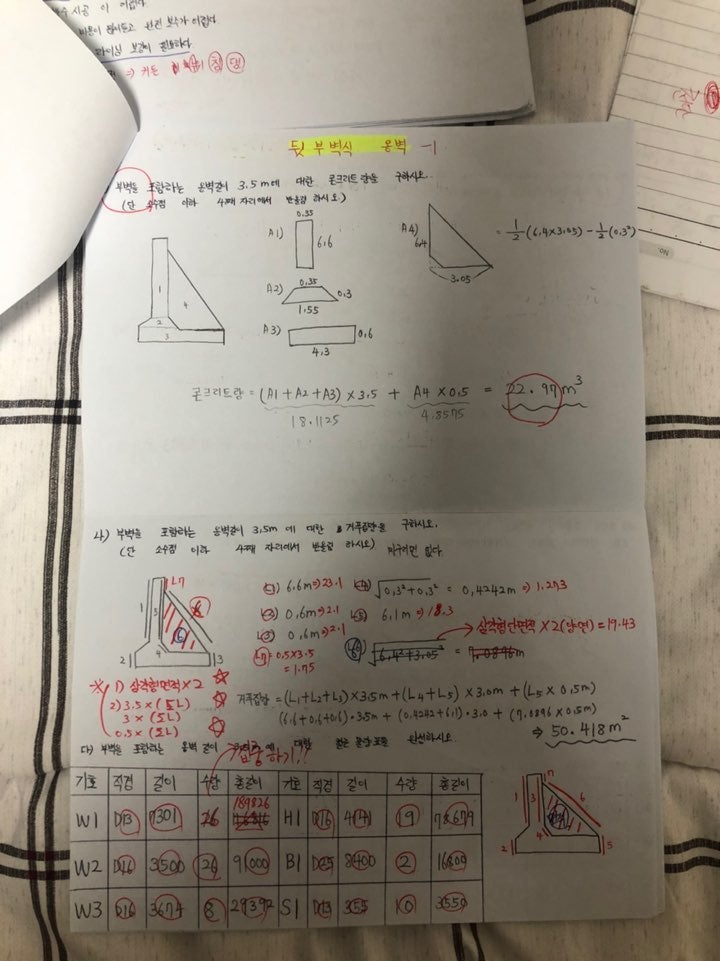 비용이 많이들고 완전 보수가 어렵다.
뒷부벽식 옹벽 -1
부벽을 포함하는 옹벽길이 3.5m에 대한 콘크리트량을 구하시오.
(단 소수점 이하 4째 자리에서 반올림 하시오.)
A1) 0.35 6.6
A2) 0.35 0.3 1.55
A3) 0.6 4.3
A4) 6.4 3.05 = 1/2(6.4×3.05) - 1/2(0.3²)
1 2 3 4
콘크리트량 = (A1+A2+A3)×3.5 + A4×0.5 = 22.97m³
18.1125 4.8575
나) 부벽을 포함하는 옹벽길이 3.5m에 대한 거푸집량을 구하시오.
(단 소수점 이하 4째 자리에서 반올림 하시오) 마구리면 없다.
L1) 6.6m⇒23.1 L4) √0.3²+0.3² = 0.4242m ⇒ 1.273
L2) 0.6m⇒2.1 L5) 6.1m⇒18.3
L3) 0.6m⇒2.1 √6.4²+3.05² = 7.0896m
삼각형단면적×2(양면)=19.43
L7 = 0.5×3.5
= 1.75
※ 1) 삼각형면적×2
2) 3.5×(ΣL)
3×(ΣL)
0.5×(ΣL)
거푸집량 = (L1+L2+L3)×3.5m+(L4+L5)×3.0m+(L5×0.5m)
(6.6+0.6+0.6)·3.5m+(0.4242+6.1)·3.0+(7.0896×0.5m)
⇒ 50.418m²
다) 부벽을 포함하는 옹벽 길이 3.5m에 대한 철근 물량표를 완성하시오.
기호 직경 길이 수량 총길이 기호 직경 길이 수량 총길이
W1 D13 7301 26 189826 H1 D16 4141 19 78679
W2 D16 3500 26 91000 B1 D25 8400 2 16800
W3 D16 3674 8 29392 S1 D13 355 10 3550